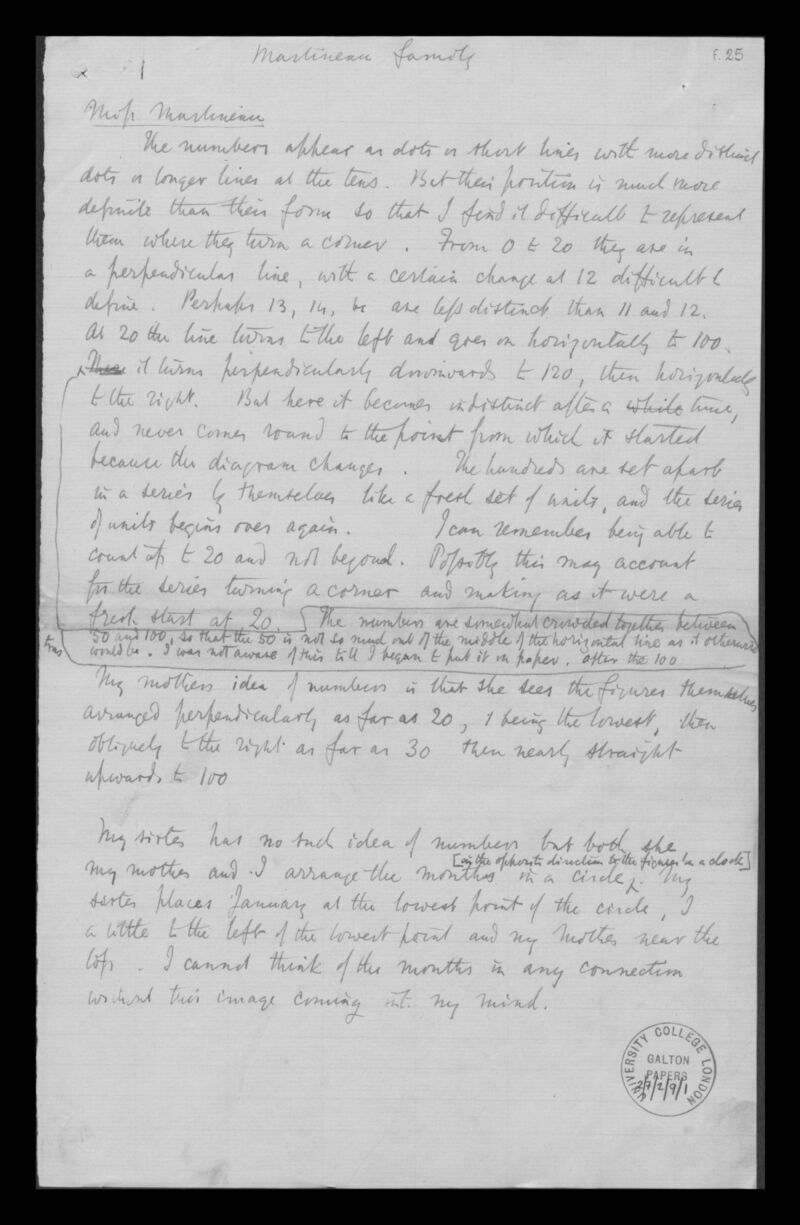 Martineau family
f. 25
x 1
Miss Martineau
The numbers appear as dots or short lines with more distinct
dots or longer lines at the tens. But their position is much more
definite than their form so that I find it difficult to represent
them where they turn a corner. From 0 to 20 they are in
a perpendicular line, with a certain change at 12 difficult to
define. Perhaps 13, 14, &c are less distinct than 11 and 12.
At 20 the line turns to the left and goes on horizontally to 100.
There it turns perpendicularly downwards to 120, then horizontally
to the right. But here it becomes indistinct after a while time,
and never comes round to the point from which it started
because the diagram changes. The hundreds are set apart
in a series by themselves like a fresh set of units, and the series
of units begins over again. I can remember being able to
count up to 20 and not beyond. Possibly this may account
for the series turning a corner and making as it were a
fresh start at 20. The numbers are somewhat crowded together between
50 and 100, so that the 50 is not so much out of the middle of the horizontal line as it otherwise
would be. I was not aware of this till I began to put it on paper. after the 100
My mothers idea of numbers is that she sees the figures themselves
arranged perpendicularly as far as 20, 1 being the lowest, then
obliquely to the right as far as 30 then nearly straight
upwards to 100
My sister has no such idea of numbers but both she
[in the opposite direction to the figures on a clock]
my mother and I arrange the months in a circle. My
sister places January at the lowest point of the circle, I
a little to the left of the lowest point and my Mother near the
top. I cannot think of the months in any connection
without this image coming into my mind.
UNIVERSITY COLLEGE LONDON
GALTON
PAPERS
2/7/2/9/1